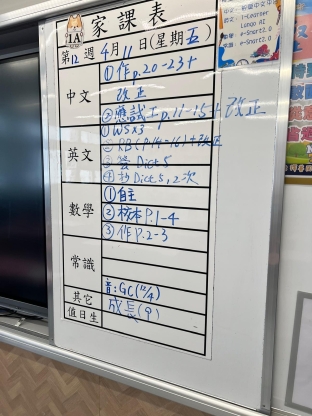 1A
家課表
第12週 4月11日(星期五)
中文
①作p.20-23+
改正
②應試工p.11-15+改正
英文
①WS x3
②RB(P.14-16)+改正
③簽Dict.5
④抄Dict.5,2次
數學
①自主
②校本P.1-4
③作P.2-3
常識
其它
音:GC(12/4)
值日生
成長(9)
中文:
英文: i-Learner
e-Smart2.0
e-Smart2.0